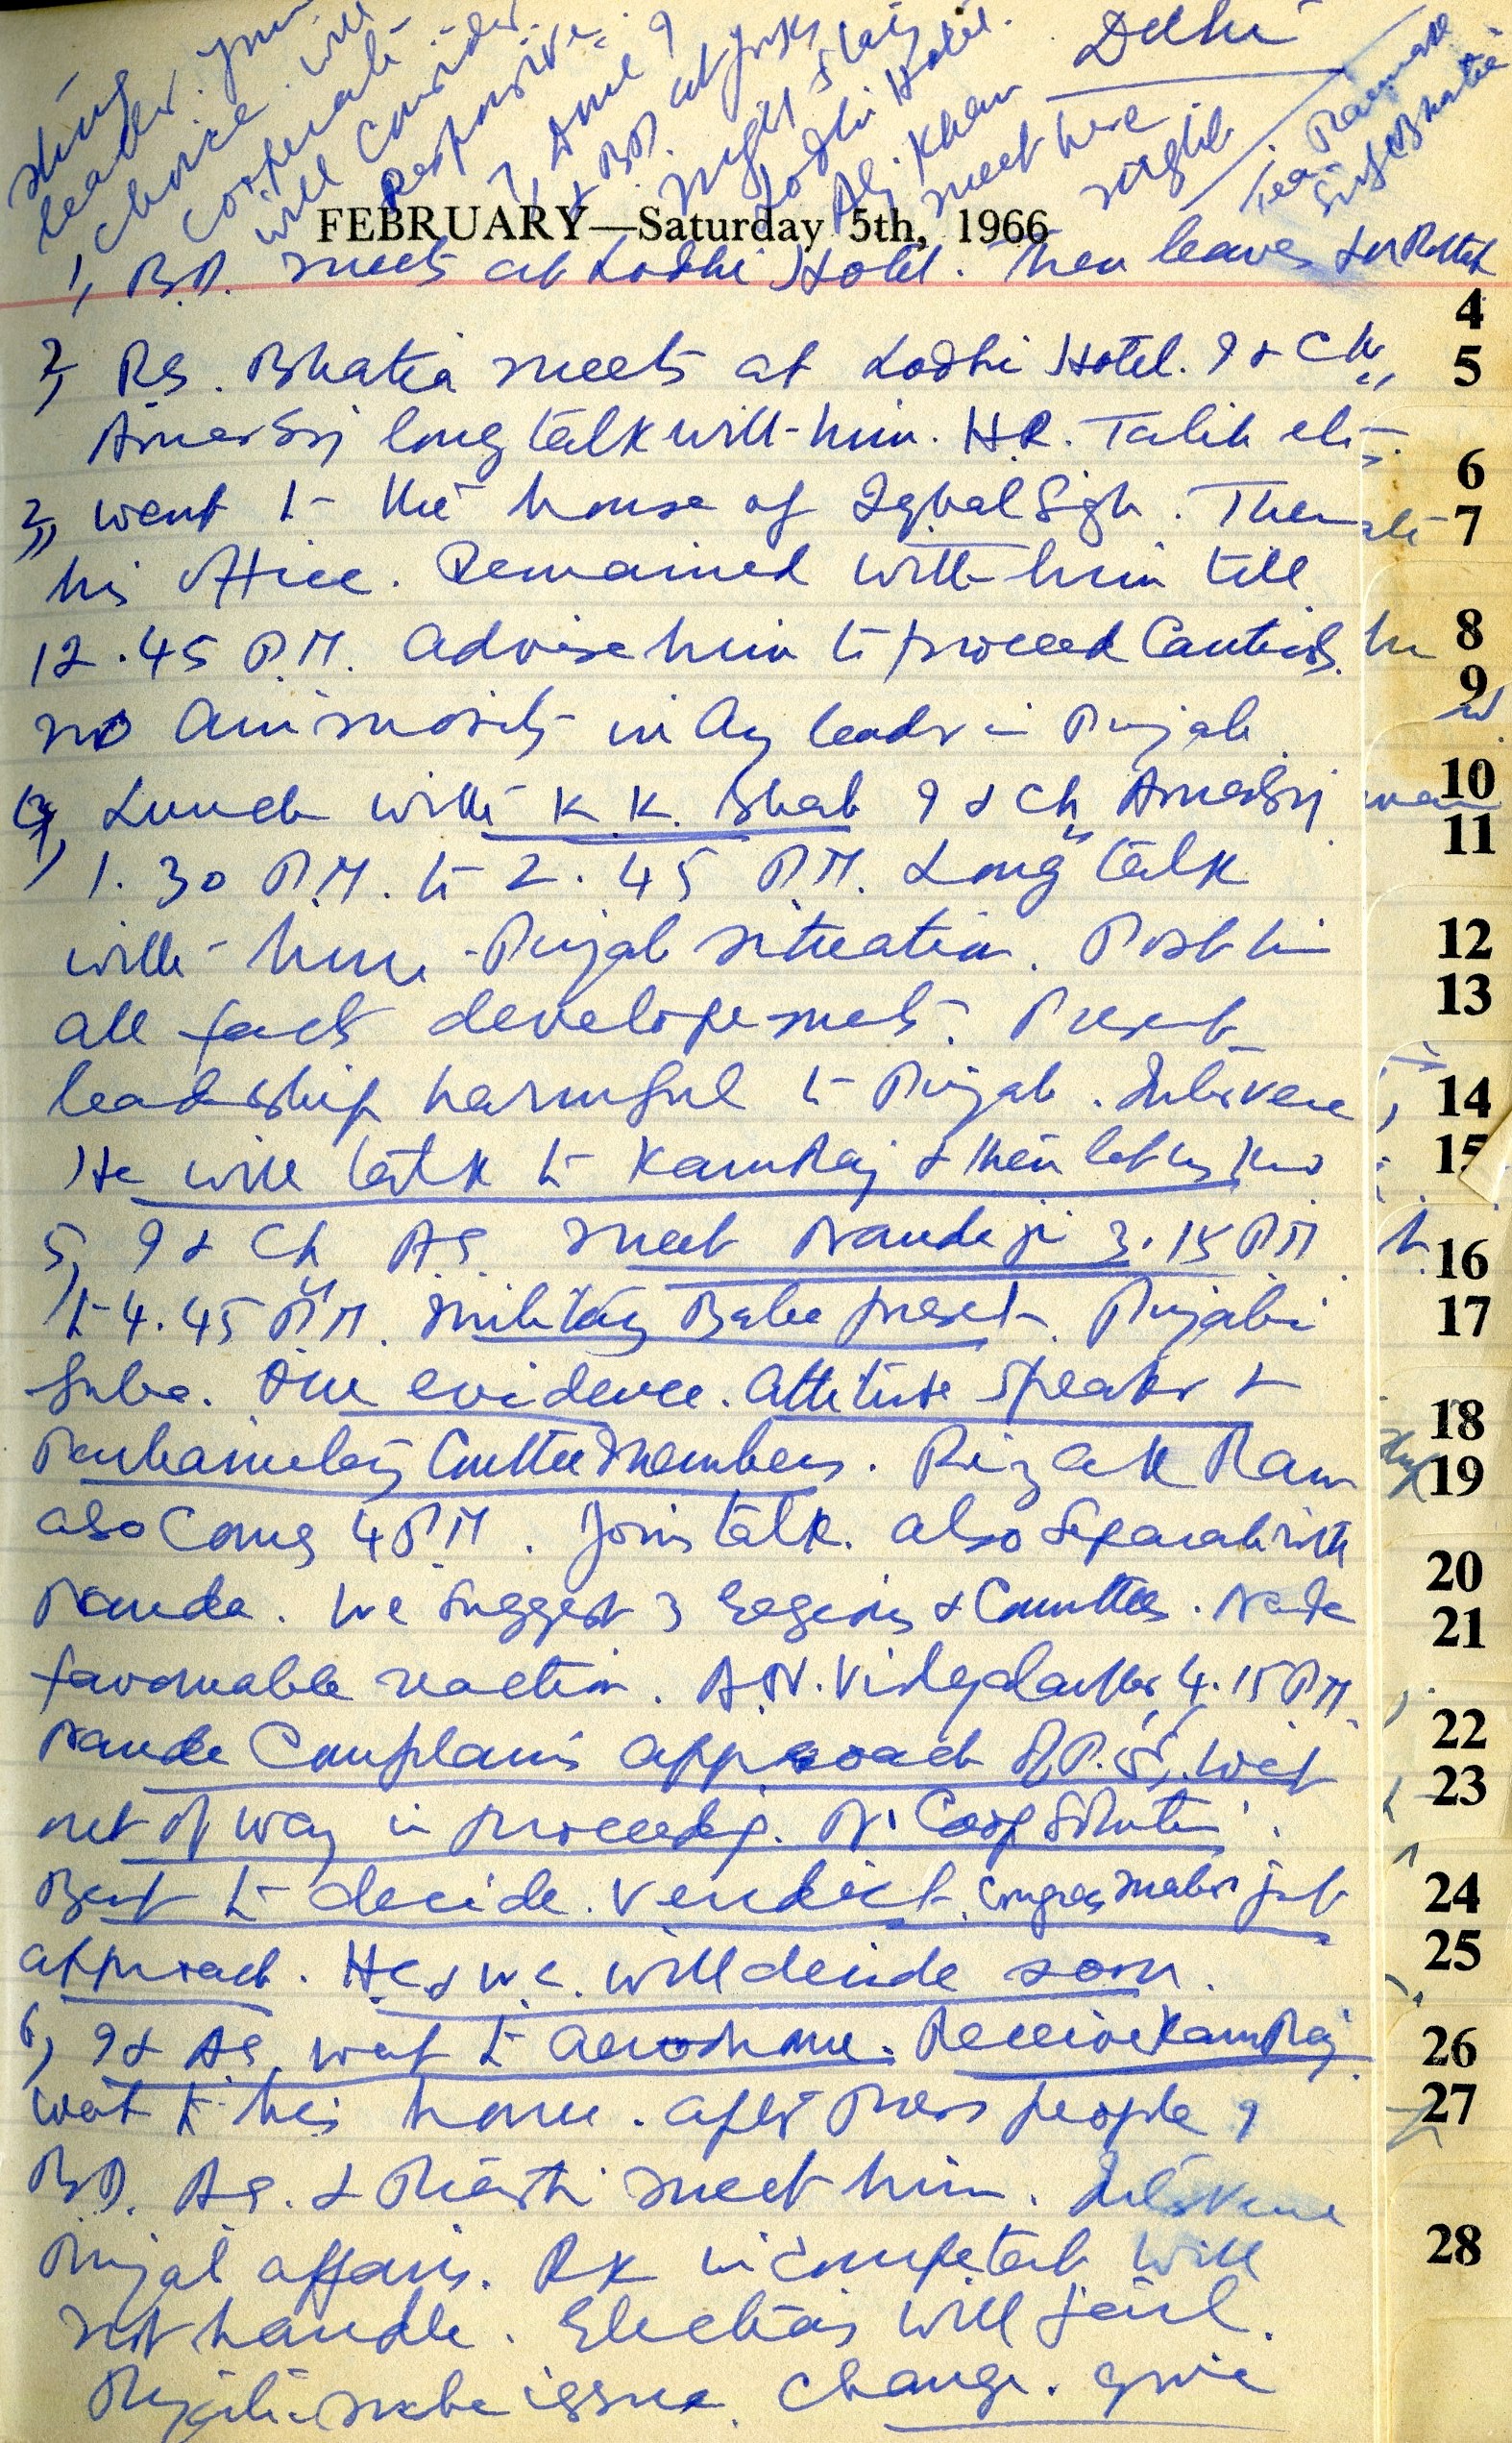 Delhi
strong
leader. your
choice. will
cooperate
will consider.
responsive.
7, I
& BD. at
night stay
Lodhi Hotel.
Ali Khan
meet here
night
Tea
Singh Bhatia
FEBRUARY—Saturday 5th, 1966
1, B.D. meets at Lodhi Hotel. Then leaves for Rohtak
2, RS. Bhatia meets at Lodhi Hotel. I & Ch,,
AmarSij long talk with him. H.R. Talib etc.
3,, went to the house of Iqbal Sigh. Then
his office. Remained with him till
12.45 P.M. advise him to proceed
no animosity in any leader in Punjab
4, Lunch with K.K. Shah I & Ch,, AmarSij
1.30 P.M. to 2.45 P.M. Long talk
with him Punjab situation. Post him
all facts developments. Present
leadership harmful to Punjab. Intervene
He will talk to KamRaj & then let us know
5, I & Ch,, AS. meet Nandaji 3.15 PM
to 4.45 P.M. present. Punjabi
Suba. Our evidence. attitude speaker &
Parliamentary Cmttee Members. Rizak Ram
also comes 4 P.M. Joins talk. also separate with
Nanda. We suggest 3 Regions & Committees. Nanda
favourable reaction. A.N. Vidyalankar 4.15 P.M.
Nanda complains approach of P.S., went
out of way in proceedig. No Coop Solution.
Best to decide. verdict. Congress
approach. He & W.C. will decide soon.
6, I & AS. went to aerodrome. Receive KamRaj
went to his house. after Press people I
B.D. AS. & meet him. Intervene
Punjab affairs. RK incompetent will
not handle. Elections will fail.
Punjabi suba issue. Change. give
4
5
6
7
8
9
10
11
12
13
14
15
16
17
18
19
20
21
22
23
24
25
26
27
28